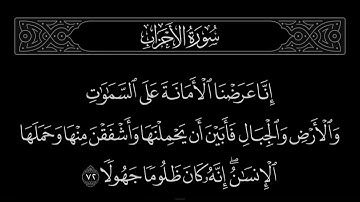 سُورَةُ الأَحْزَابِ
إِنَّا عَرَضْنَا ٱلْأَمَانَةَ عَلَى ٱلسَّمَٰوَٰتِ
وَٱلْأَرْضِ وَٱلْجِبَالِ فَأَبَيْنَ أَن يَحْمِلْنَهَا وَأَشْفَقْنَ مِنْهَا وَحَمَلَهَا
ٱلْإِنسَٰنُۖ إِنَّهُۥ كَانَ ظَلُومًا جَهُولًا ٧٢